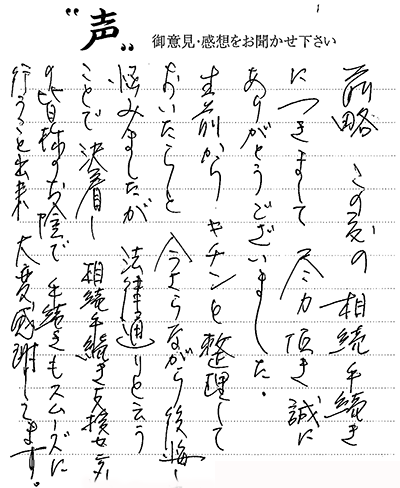 "声"
御意見・感想をお聞かせ下さい
前略 この度の相続手続き
につきまして 尽力頂き 誠に
ありがとうございました。
生前から キチンと整理して
おいたらと 今さらながら後悔し
悩みましたが 法律通りと云う
ことで 決着し 相続手続き支援センター
の皆様のお陰で 手続きもスムーズに
行うこと出来 大変感謝してます。